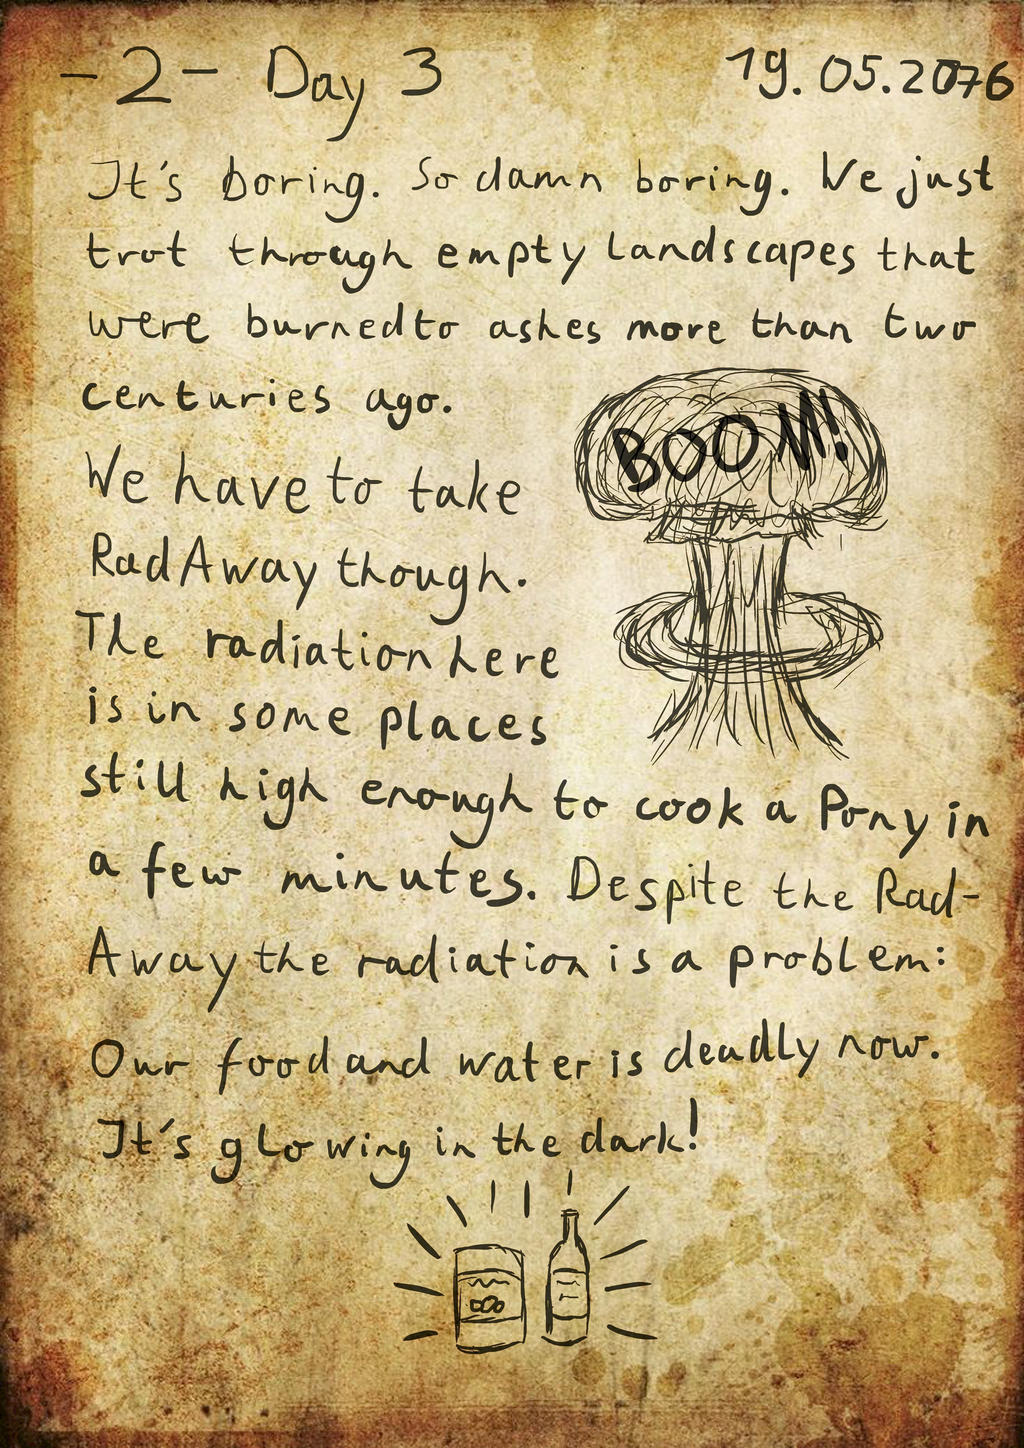 -2- Day 3 19.05.2076
It's boring. So damn boring. We just
trot through empty landscapes that
were burned to ashes more than two
centuries ago.
BOOM!
We have to take
RadAway though.
The radiation here
is in some places
still high enough to cook a Pony in
a few minutes. Despite the Rad-
Away the radiation is a problem:
Our food and water is deadly now.
It's glowing in the dark!